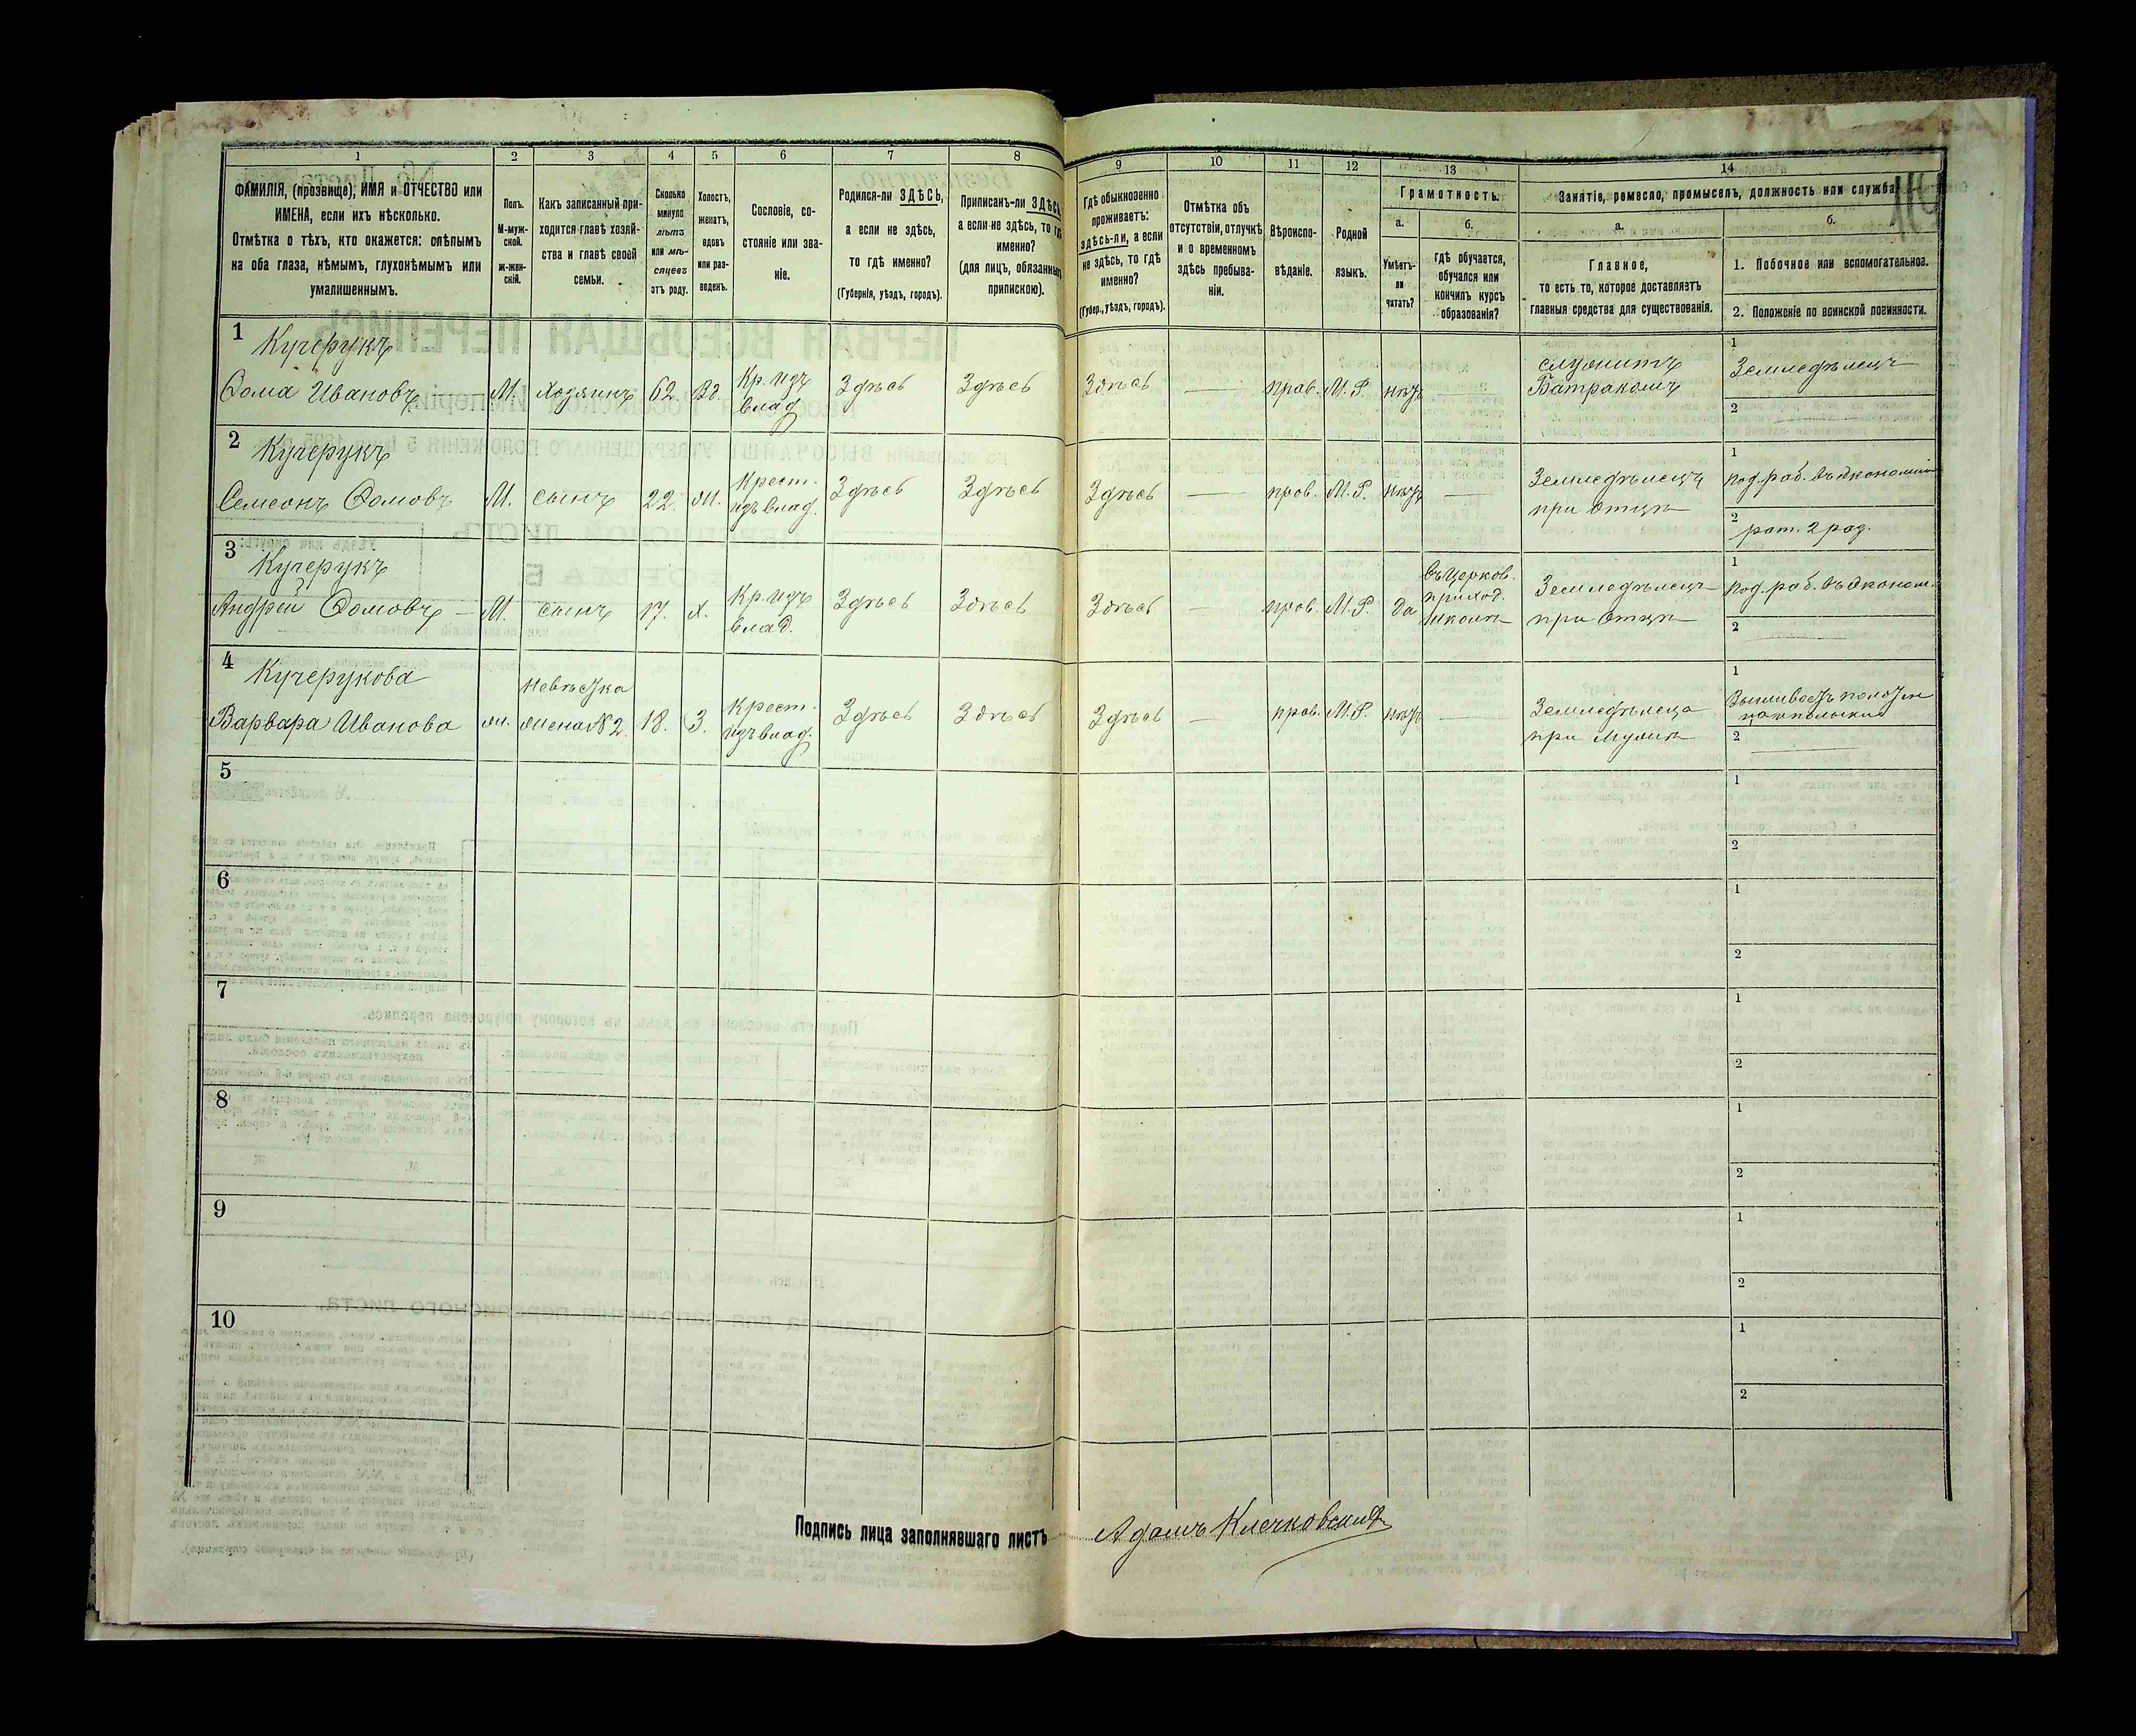 1 2 3 4 5 6 7 8 9 10 11 12 13 14
ФАМИЛІЯ, (прозвище), ИМЯ и ОТЧЕСТВО или
ИМЕНА, если ихъ нѣсколько.
Отмѣтка о тѣхъ, кто окажется: слѣпымъ
на оба глаза, нѣмымъ, глухонѣмымъ или
умалишеннымъ.
Полъ.
М-муж-
ской.
ж-жен-
скій.
Какъ записанный при-
ходится главѣ хозяй-
ства и главѣ своей
семьи.
Сколько
минуло
лѣтъ
или мѣ-
сяцевъ
отъ роду.
Холостъ,
женатъ,
вдовъ
или раз-
веденъ.
Сословіе, со-
стояніе или зва-
ніе.
Родился-ли ЗДѢСЬ,
а если не здѣсь,
то гдѣ именно?
(Губернія, уѣздъ, городъ).
Приписанъ-ли ЗДѢСЬ
а если не здѣсь, то гдѣ
именно?
(для лицъ, обязанныхъ
припискою).
Гдѣ обыкновенно
проживаетъ:
здѣсь-ли, а если
не здѣсь, то гдѣ
именно?
(Губер., уѣздъ, городъ).
Отмѣтка объ
отсутствіи, отлучкѣ
и о временномъ
здѣсь пребыва-
ніи.
Вѣроиспо-
вѣданіе.
Родной
языкъ.
Грамотность.
а.
Умѣетъ-
ли
читать?
б.
Гдѣ обучается,
обучался или
кончилъ курсъ
образованія?
Занятіе, ремесло, промыселъ, должность или служба.
а.
Главное,
то есть то, которое доставляетъ
главныя средства для существованія.
б.
1. Побочное или вспомогательное.
2. Положеніе по воинской повинности.
1 Кучерукъ
Ѳома Ивановъ М. Хозяинъ 62. Вд. Кр. изъ влад Здѣсь Здѣсь Здѣсь — прав. М.Р. нѣтъ служитъ Батракомъ 1 Земледѣлецъ
2 —
2 Кучерукъ
Семеонъ Ѳомовъ М. сынъ 22. Ж. Крест. изъ влад. Здѣсь Здѣсь Здѣсь — прав. М.Р. нѣтъ — Земледѣлецъ при Отцѣ 1 под. раб. въ экономіи
2 рат. 2 раз.
3 Кучерукъ
Андрей Ѳомовъ — М. сынъ 17. Х. Кр. изъ влад. Здѣсь Здѣсь Здѣсь — прав. М.Р. да въ Церков. приход. школѣ Земледѣлецъ при Отцѣ 1 под. раб. въ эконом.
2 —
4 Кучерукова
Варвара Иванова ж. Невѣстка жена №2. 18. З. Крест. изъ влад. Здѣсь Здѣсь Здѣсь — прав. М.Р. нѣтъ — Земледѣлица при Мужѣ 1
2 —
5 1
2
6 1
2
7 1
2
8 1
2
9 1
2
10 1
2
Подпись лица заполнявшаго листъ Адамъ Клечковскій